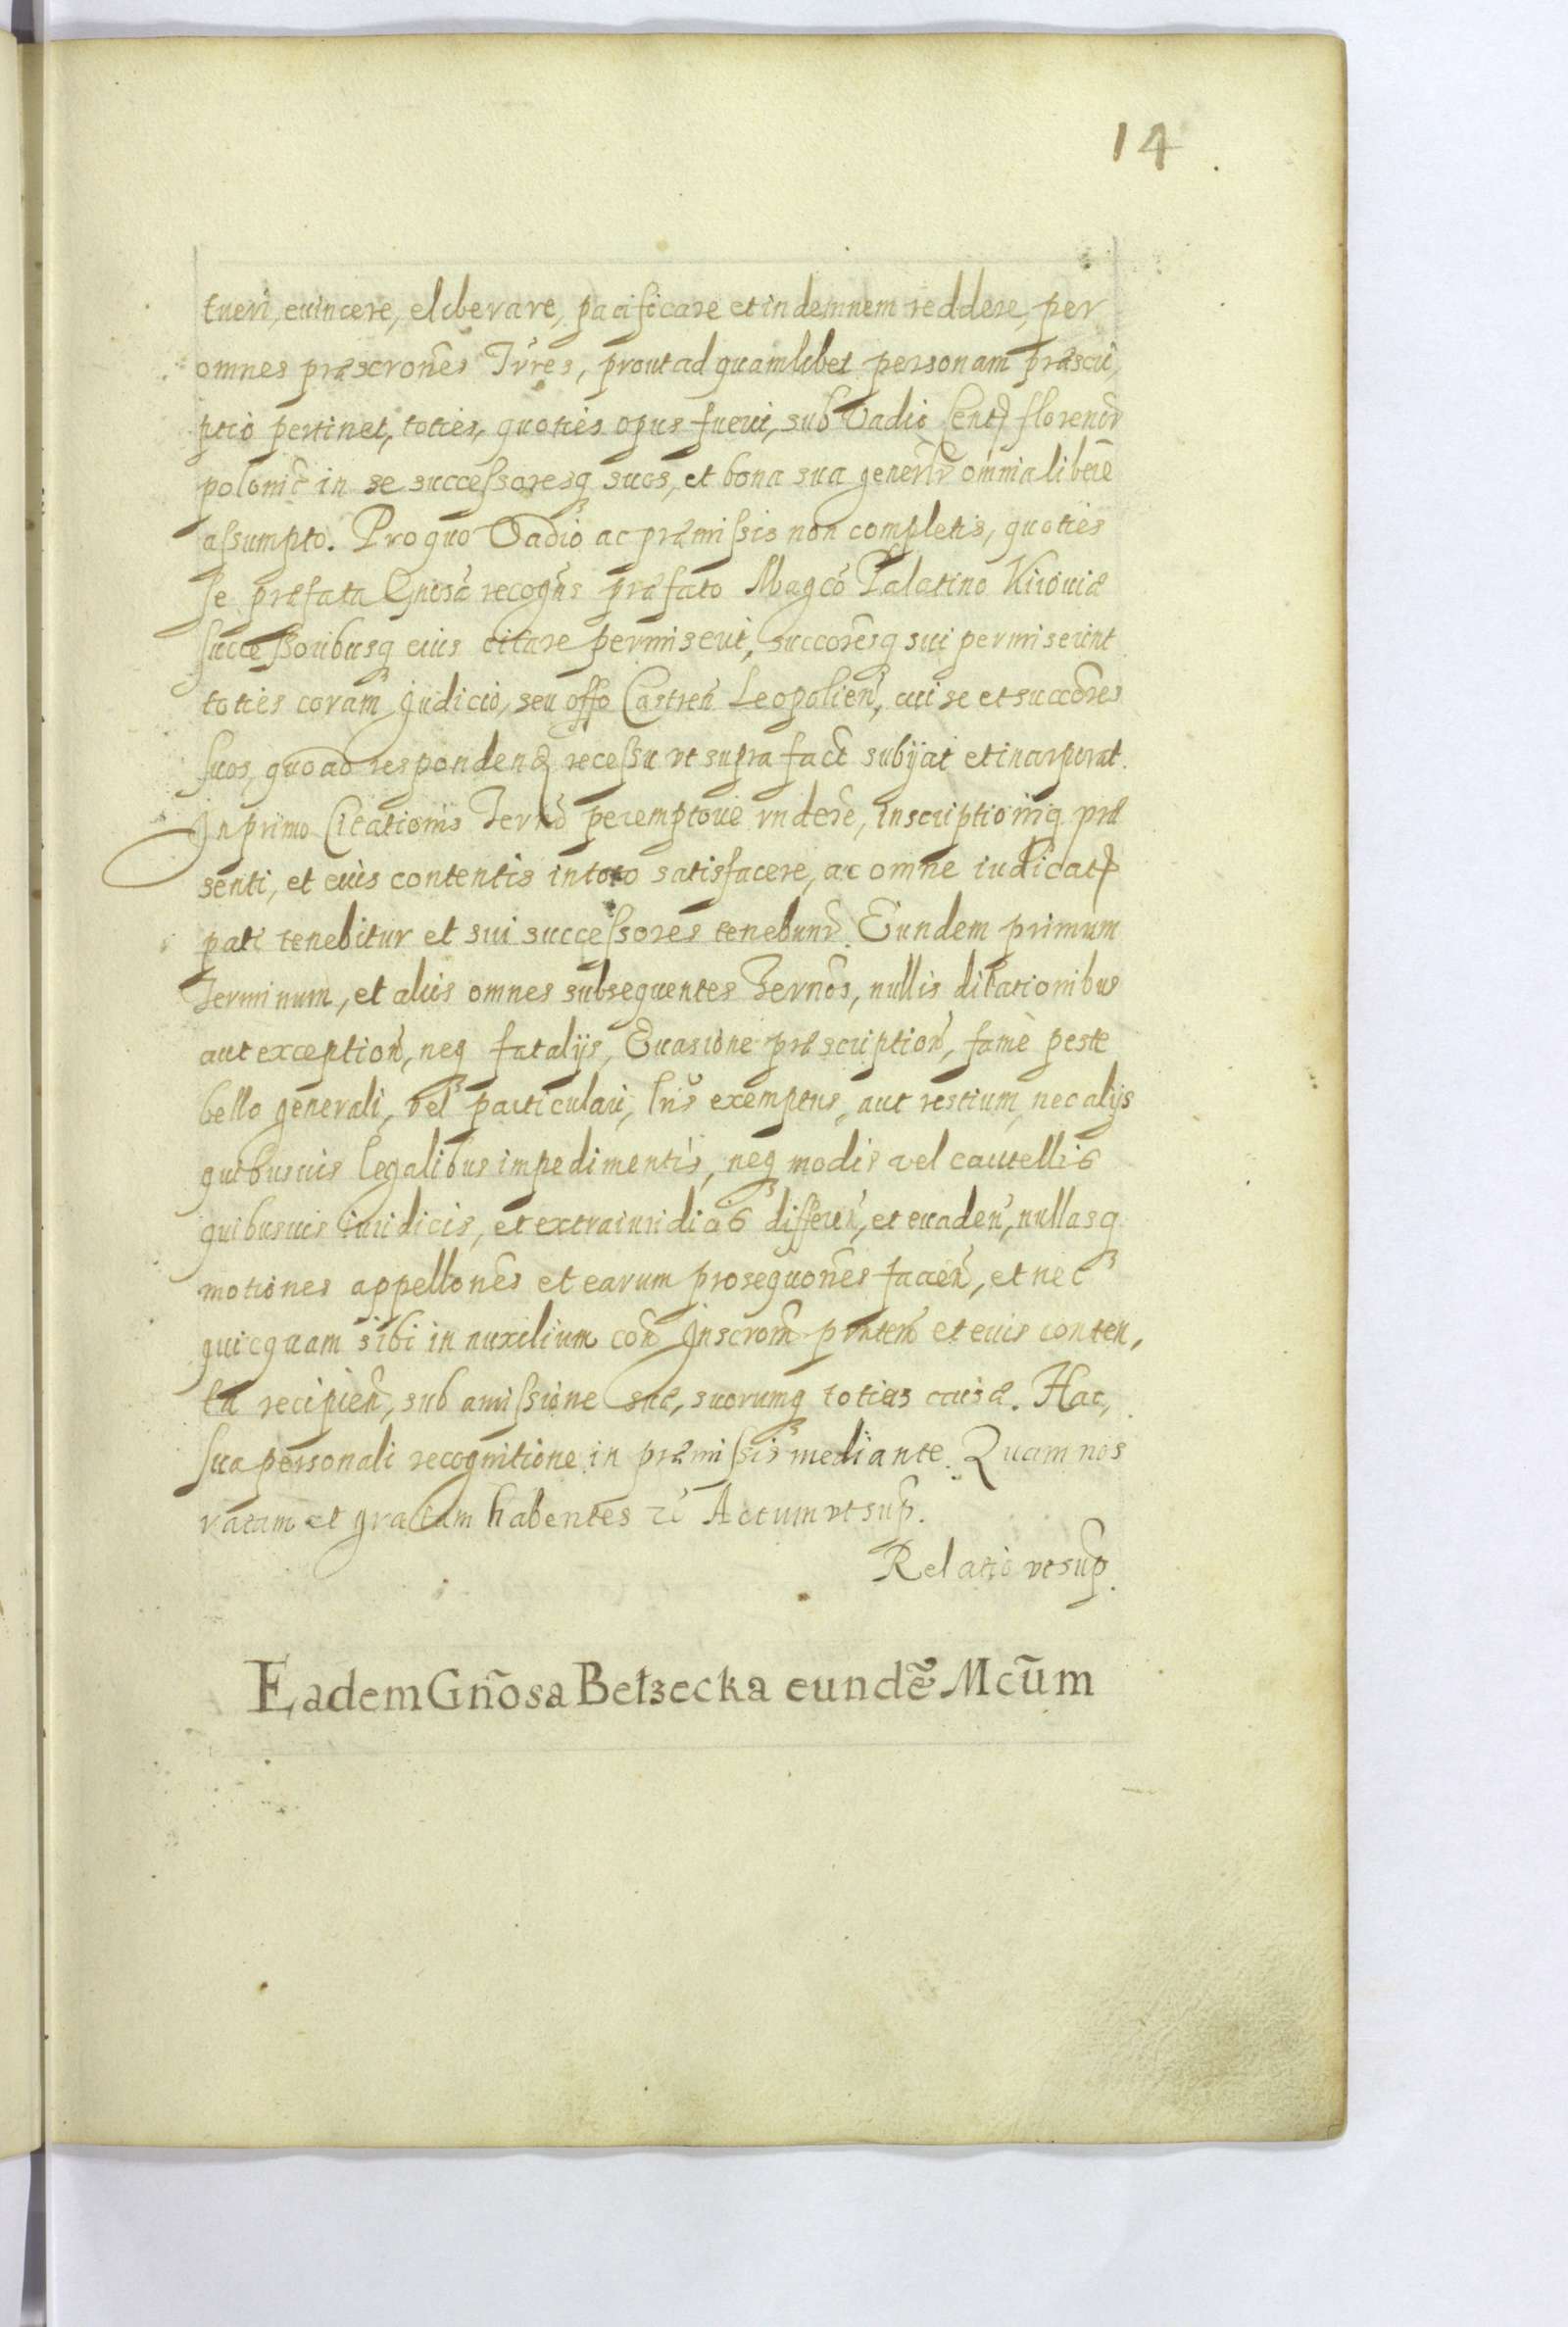 14
tueri, euincere, eliberare, pacificare et indemnem reddere, per
omnes præscrones Trres, prout ad quamlibet personam præscri,
ptio pertinet, toties, quoties opus fuerit, sub Vadio Cent florenor
polonic in se successoresq suos, et bona sua generlr omnia libere
assumpto. Pro quo Vadio ac præmissis non completis, quoties
se præfata Gnosa recogns præfato Magco Palatino Kiiouiæ
successoribusq eius citare permiserit, succoresq sui permiserint
toties coram Judicio, seu offo Castren Leopolien, cui se et succores
suos, quoad respondend recessu vt supra fact subijcit et incorporat.
In primo Citationis Termo peremptorie rndere, inscriptioniq præ
senti, et eius contentis in toto satisfacere, ac omne iudicat
pati tenebitur et sui successores tenebunr. Eundem primum
Terminum, et alios omnes subsequentes Ternos, nullis dilationibus
aut exception, neq fatalijs, Euasione præscription, fame peste
bello generali, vel particulari, lris exemptus, aut testium, nec alijs
quibusuis legalibus impedimentis, neq modis vel cautellis
quibusuis iuridicis, et extraiuridicis differen, et euaden, nullasq
motiones appellones et earum prosequones facien, et nec
quicquam sibi in auxilium con Inscrom pntem et eius conten,
ta recipien, sub amissione suæ, suorumq totius causæ. Hac,
sua personali recognitione in præmissis mediante. Quam nos
ratam et gratam habentes &c Actum vt sup.
Relatio vt sup.
Eadem Gñosa Bełzecka eundẽ Mcũm